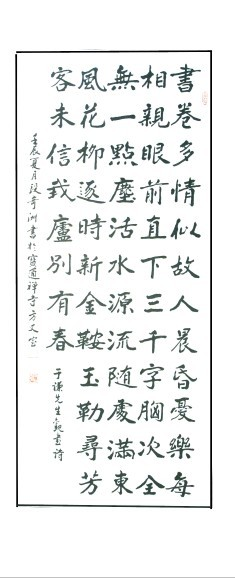 書卷多情似故人晨昏憂樂每
相親眼前直下三千字胸次全
無一點塵活水源流随處滿東
風花柳逐時新金鞍玉勒尋芳
客未信我廬別有春
于谦先生觀書詩
壬辰夏月段奇洲書於寶通禅寺方丈室